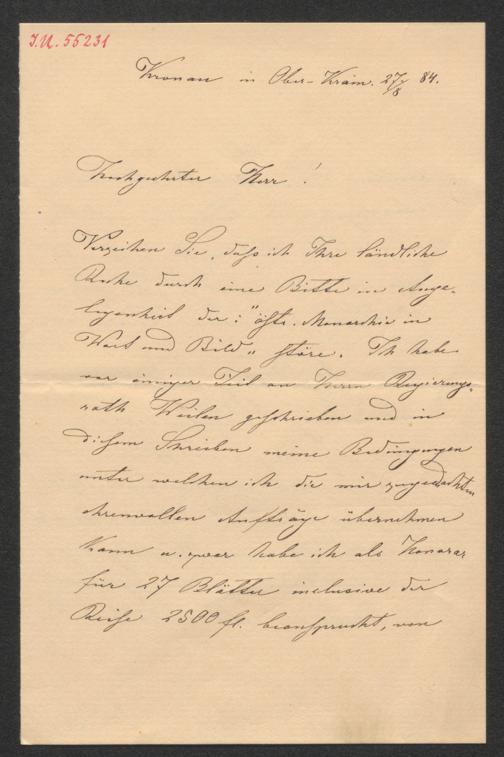 J.N. 55231
Kronau in Ober-Krain. 27/8 84.
Hochgeehrter Herr!
Verzeihen Sie, daß ich Ihre ländliche
Ruhe durch eine Bitte in Ange-
legenheit der: "östr. Monarchie in
Wort und Bild" störe. Ich habe
vor einiger Zeit an Herrn Regierungs-
rath Weilen geschrieben und in
disem Schreiben meine Bedingungen
unter welchen ich die mir zugedachten
ehrenvollen Aufträge übernehmen
kann u. zwar habe ich als Honorar
für 27 Blätter inclusive der
Reise 2500 fl. beansprucht, von